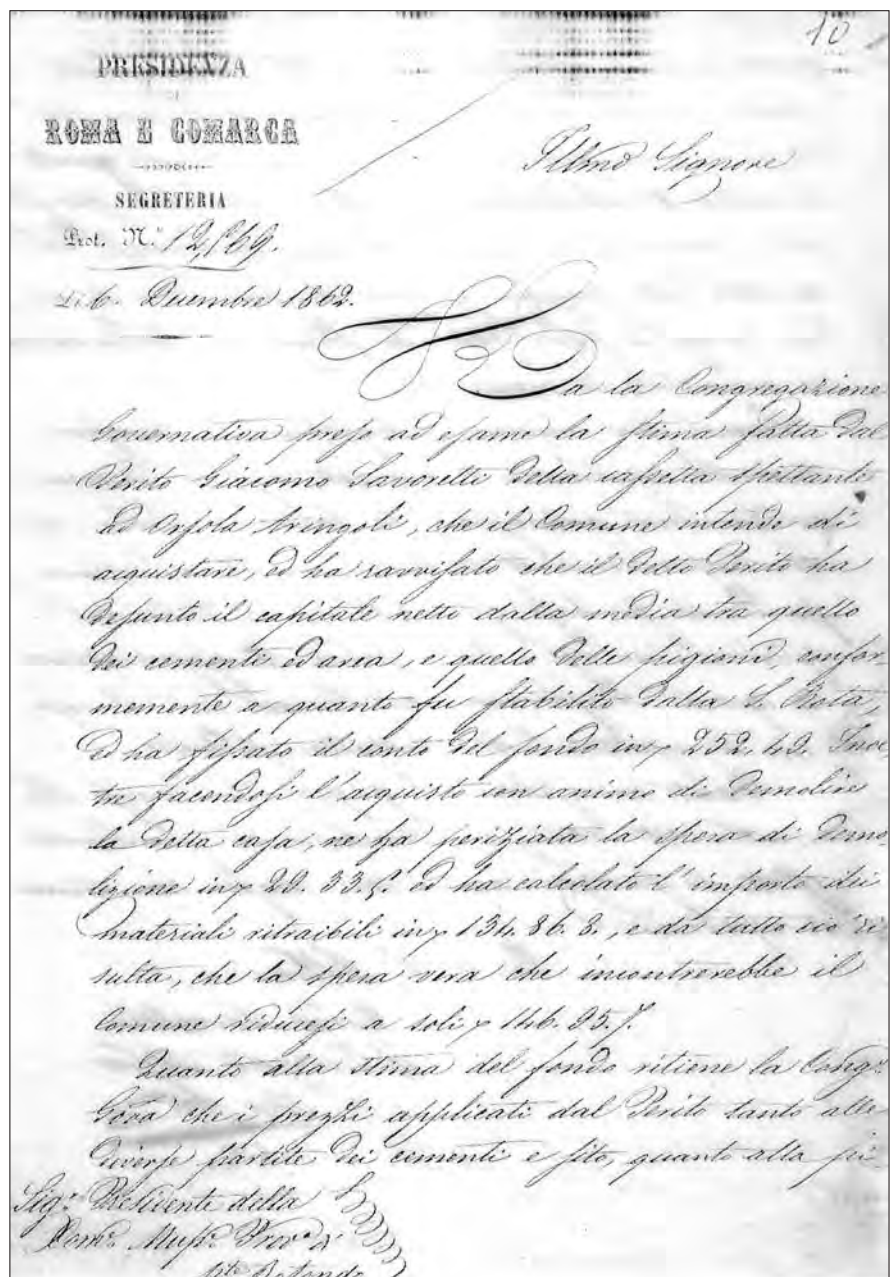 10
PRESIDENZA
DI
ROMA E COMARCA
SEGRETERIA
Prot. N.º 12,569.
Li 6. Decembre 1862.
Illmo Signore
Ha la Congregazione
Governativa preso ad esame la stima fatta dal
Perito Giacomo Savorelli della casetta spettante
ad Orsola Aringoli, che il Comune intende di
acquistare, ed ha ravvisato che il detto Perito ha
desunto il capitale netto dalla media tra quello
dei cementi ed area, e quello delle pigioni, confor-
memente a quanto fu stabilito dalla S. Rota,
ed ha fissato il conto del fondo in 252. 49. Inol-
tre facendosi l'acquisto con animo di demolire
la detta casa, ne ha periziata la spesa di demo-
lizione in 29. 33. 5. ed ha calcolato l'importo dei
materiali ritraibili in 134. 86. 8., e da tutto ciò ri-
sulta, che la spesa vera che incontrerebbe il
Comune riducesi a soli 146. 95. 7.
Quanto alla stima del fondo ritiene la Congne
Gova che i prezzi applicati dal Perito tanto alle
diverse partite dei cementi e sito, quanto alla pi-
Sigr Presidente della
Comne Muple Provva di
Mte Rotondo